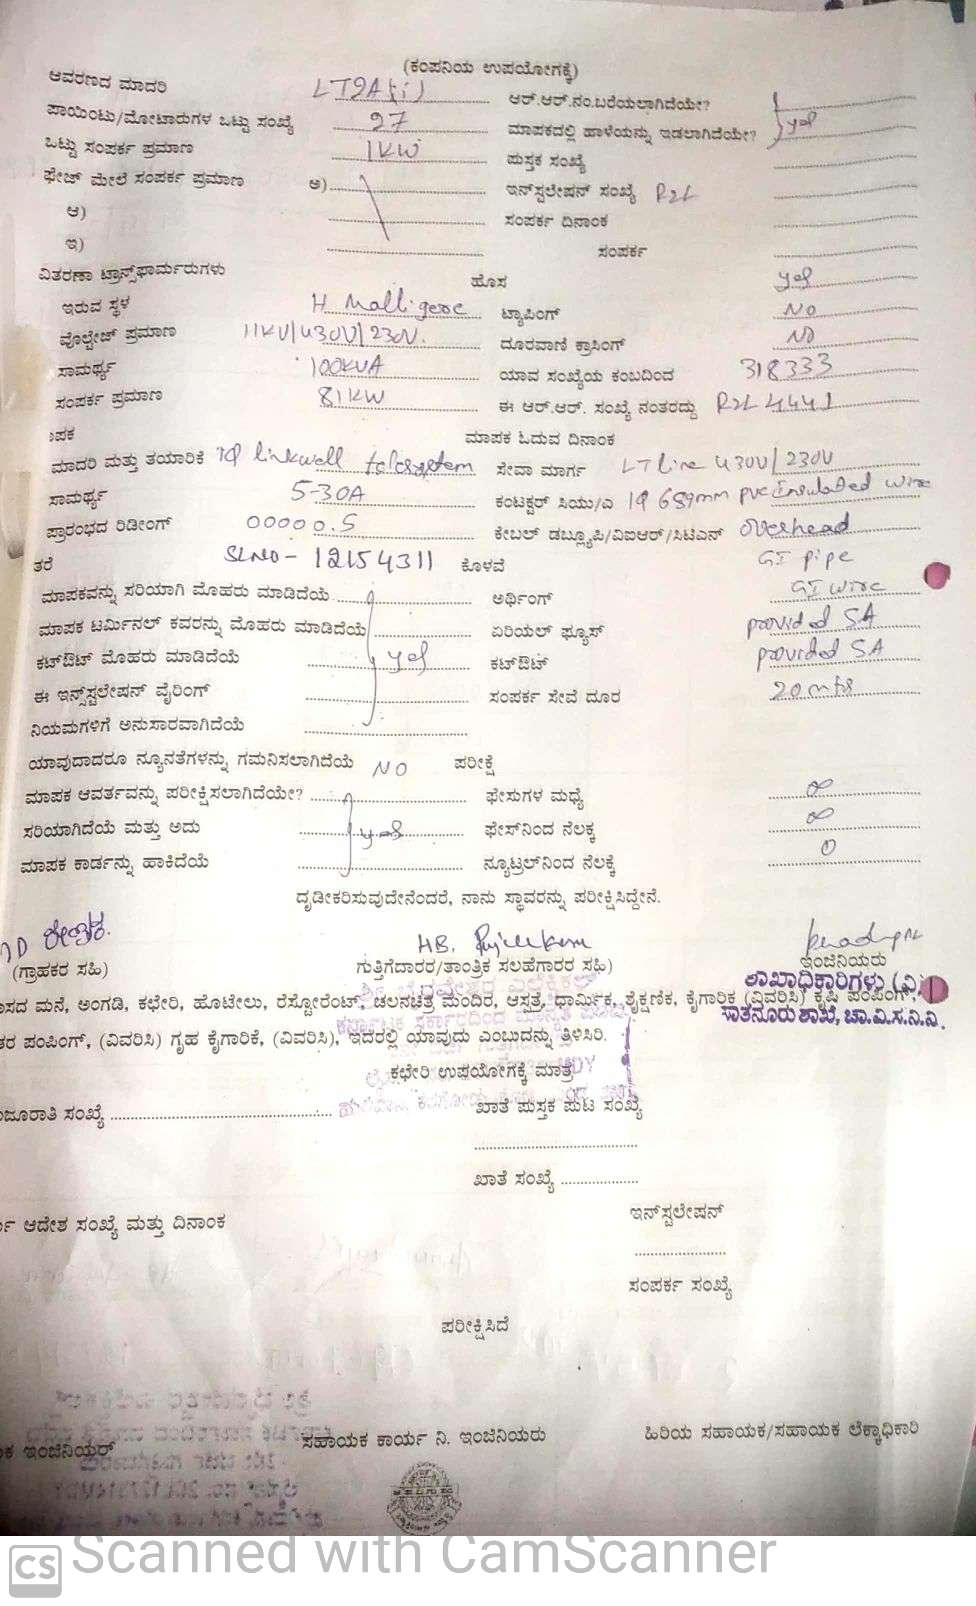 (ಕಂಪನಿಯ ಉಪಯೋಗಕ್ಕೆ)
ಆವರಣದ ಮಾದರಿ ಆರ್.ಆರ್.ನಂ.ಬರೆಯಲಾಗಿದೆಯೇ?
ಪಾಯಿಂಟು/ಮೋಟಾರುಗಳ ಒಟ್ಟು ಸಂಖ್ಯೆ ಮಾಪಕದಲ್ಲಿ ಹಾಳೆಯನ್ನು ಇಡಲಾಗಿದೆಯೇ? yes
ಒಟ್ಟು ಸಂಪರ್ಕ ಪ್ರಮಾಣ 1KW ಪುಸ್ತಕ ಸಂಖ್ಯೆ
ಫೇಜ್ ಮೇಲೆ ಸಂಪರ್ಕ ಪ್ರಮಾಣ ಅ) ಇನ್‌ಸ್ಟಲೇಷನ್ ಸಂಖ್ಯೆ R2L
ಆ) ಸಂಪರ್ಕ ದಿನಾಂಕ
ಇ) ಸಂಪರ್ಕ
ವಿತರಣಾ ಟ್ರಾನ್ಸ್‌ಫಾರ್ಮರುಗಳು ಹೊಸ yes
ಇರುವ ಸ್ಥಳ H Malligere ಟ್ಯಾಪಿಂಗ್ NO
ವೊಲ್ಟೇಜ್ ಪ್ರಮಾಣ 11KV/430V/230V. ದೂರವಾಣಿ ಕ್ರಾಸಿಂಗ್ NO
ಸಾಮರ್ಥ್ಯ 100KVA ಯಾವ ಸಂಖ್ಯೆಯ ಕಂಬದಿಂದ 318333
ಸಂಪರ್ಕ ಪ್ರಮಾಣ 81KW ಈ ಆರ್.ಆರ್. ಸಂಖ್ಯೆ ನಂತರದ್ದು R2L 4441
ಪಕ ಮಾಪಕ ಓದುವ ದಿನಾಂಕ
ಮಾದರಿ ಮತ್ತು ತಯಾರಿಕೆ 1Φ linkwell telesystem ಸೇವಾ ಮಾರ್ಗ LT line 430V/230V
ಸಾಮರ್ಥ್ಯ 5-30A ಕಂಟಕ್ಟರ್ ಸಿಯು/ಎ 1Φ pvc Insulated wire
ಪ್ರಾರಂಭದ ರಿಡೀಂಗ್ 00000.5 ಕೇಬಲ್ ಡಬ್ಲ್ಯೂಪಿ/ವಿಐಆರ್/ಸಿಟಿಎನ್ overhead
ತರೆ SLNO- 12154311 ಕೊಳವೆ GI pipe
ಮಾಪಕವನ್ನು ಸರಿಯಾಗಿ ಮೊಹರು ಮಾಡಿದೆಯೆ ಅರ್ಥಿಂಗ್ GI wire
ಮಾಪಕ ಟರ್ಮಿನಲ್ ಕವರನ್ನು ಮೊಹರು ಮಾಡಿದೆಯೆ ಏರಿಯಲ್ ಫ್ಯೂಸ್ provided 5A
ಕಟ್‌ಔಟ್ ಮೊಹರು ಮಾಡಿದೆಯೆ yes ಕಟ್‌ಔಟ್ provided 5A
ಈ ಇನ್ಸ್ಟಲೇಷನ್ ವೈರಿಂಗ್ ಸಂಪರ್ಕ ಸೇವೆ ದೂರ 20mts
ನಿಯಮಗಳಿಗೆ ಅನುಸಾರವಾಗಿದೆಯೆ
ಯಾವುದಾದರೂ ನ್ಯೂನತೆಗಳನ್ನು ಗಮನಿಸಲಾಗಿದೆಯೆ NO ಪರೀಕ್ಷೆ
ಮಾಪಕ ಆವರ್ತವನ್ನು ಪರೀಕ್ಷಿಸಲಾಗಿದೆಯೇ? ಫೇಸುಗಳ ಮಧ್ಯೆ ∞
ಸರಿಯಾಗಿದೆಯೆ ಮತ್ತು ಅದು yes ಫೇಸ್‌ನಿಂದ ನೆಲಕ್ಕ ∞
ಮಾಪಕ ಕಾರ್ಡನ್ನು ಹಾಕಿದೆಯೆ ನ್ಯೂಟ್ರಲ್‌ನಿಂದ ನೆಲಕ್ಕೆ 0
ದೃಡೀಕರಿಸುವುದೇನೆಂದರೆ, ನಾನು ಸ್ಥಾವರನ್ನು ಪರೀಕ್ಷಿಸಿದ್ದೇನೆ.
(ಗ್ರಾಹಕರ ಸಹಿ) ಗುತ್ತಿಗೆದಾರರ/ತಾಂತ್ರಿಕ ಸಲಹೆಗಾರರ ಸಹಿ) ಇಂಜಿನಿಯರು
ಶಾಖಾಧಿಕಾರಿಗಳು (ವಿ)
ಸದ ಮನೆ, ಅಂಗಡಿ, ಕಛೇರಿ, ಹೊಟೇಲು, ರೆಸ್ಟೋರೆಂಟ್, ಚಲನಚಿತ್ರ ಮಂದಿರ, ಆಸ್ಪತ್ರೆ, ಧಾರ್ಮಿಕ, ಶೈಕ್ಷಣಿಕ, ಕೈಗಾರಿಕ (ವಿವರಿಸಿ) ಕೃಷಿ ಪಂಪಿಂಗ್,
ಶಾಖೆ, ಚಾ.ವಿ.ಸ.ನಿ.ನಿ.
ತರ ಪಂಪಿಂಗ್, (ವಿವರಿಸಿ) ಗೃಹ ಕೈಗಾರಿಕೆ, (ವಿವರಿಸಿ), ಇದರಲ್ಲಿ ಯಾವುದು ಎಂಬುದನ್ನು ತಿಳಿಸಿರಿ.
ಕಛೇರಿ ಉಪಯೋಗಕ್ಕೆ ಮಾತ್ರ
ಜೂರಾತಿ ಸಂಖ್ಯೆ ಖಾತೆ ಪುಸ್ತಕ ಪುಟ ಸಂಖ್ಯೆ
ಖಾತೆ ಸಂಖ್ಯೆ
ಆದೇಶ ಸಂಖ್ಯೆ ಮತ್ತು ದಿನಾಂಕ ಇನ್‌ಸ್ಟಲೇಷನ್
ಸಂಪರ್ಕ ಸಂಖ್ಯೆ
ಪರೀಕ್ಷಿಸಿದೆ
ಕ ಇಂಜಿನಿಯರ್ ಸಹಾಯಕ ಕಾರ್ಯ ನಿ. ಇಂಜಿನಿಯರು ಹಿರಿಯ ಸಹಾಯಕ/ಸಹಾಯಕ ಲೆಕ್ಕಾಧಿಕಾರಿ
CS Scanned with CamScanner